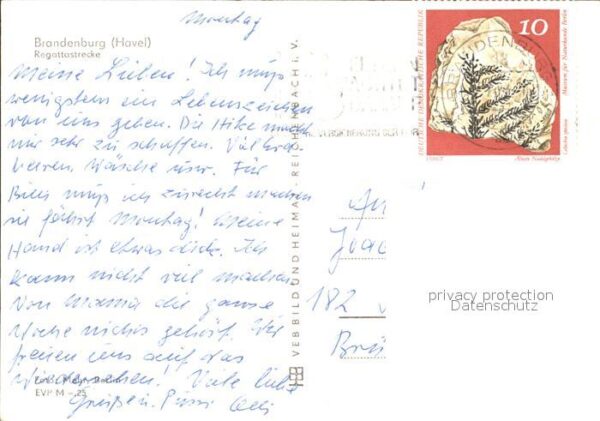 Montag
Brandenburg (Havel)
Regattastrecke
Meine Lieben! Ich muß
wenigstens ein Lebenszeichen
von uns geben. Die Hitze macht
mir sehr zu schaffen.
beeren, Wäsche usw. Für
muß ich zurecht machen
sie fährt Montag! Meine
Hand ist etwas dick. Ich
kann nicht viel machen
Von Mama die ganze
Woche nichts gehört. Wir
freuen uns auf das
Wiedersehen! Viele liebe
Grüße
EVP M –,25
VEB BILD UND HEIMAT REICHENBACH i. V.
DEUTSCHE DEMOKRATISCHE REPUBLIK
10
Museum für Naturkunde Berlin
BRANDENBURG
An
Joac
182
Brü
privacy protection
Datenschutz